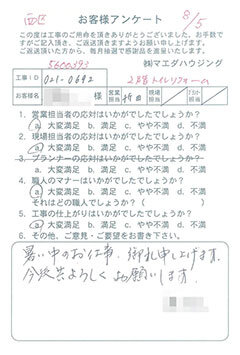 西区 お客様アンケート 8/5
この度は工事のご用命を頂きありがとうございました。お手数で
すがご記入頂き、ご返送頂きますようお願い申し上げます。
ご返送頂いた方から、毎月抽選で感謝品を進呈いたします。
5600393 ㈱マエダハウジング
工事ID 021-0692 2階トイレリフォーム
お客様 様 営業担当 折田 現場担当 アシスト担当
1. 営業担当者の応対はいかがでしたでしょうか?
a. 大変満足 b. 満足 c. やや不満 d. 不満
2. 現場担当者の応対はいかがでしたでしょうか?
a. 大変満足 b. 満足 c. やや不満 d. 不満
3. プランナーの応対はいかがでしたでしょうか?
a. 大変満足 b. 満足 c. やや不満 d. 不満
4. 職人のマナーはいかがでしたでしょうか?
a. 大変満足 b. 満足 c. やや不満 d. 不満
それはどの職人でしょうか?( )
5. 工事の仕上がりはいかがでしたでしょうか?
a. 大変満足 b. 満足 c. やや不満 d. 不満
6. その他、ご意見・ご要望をお書き下さい。
暑い中のお仕事、御礼申し上げます。
今後共よろしくお願いします。